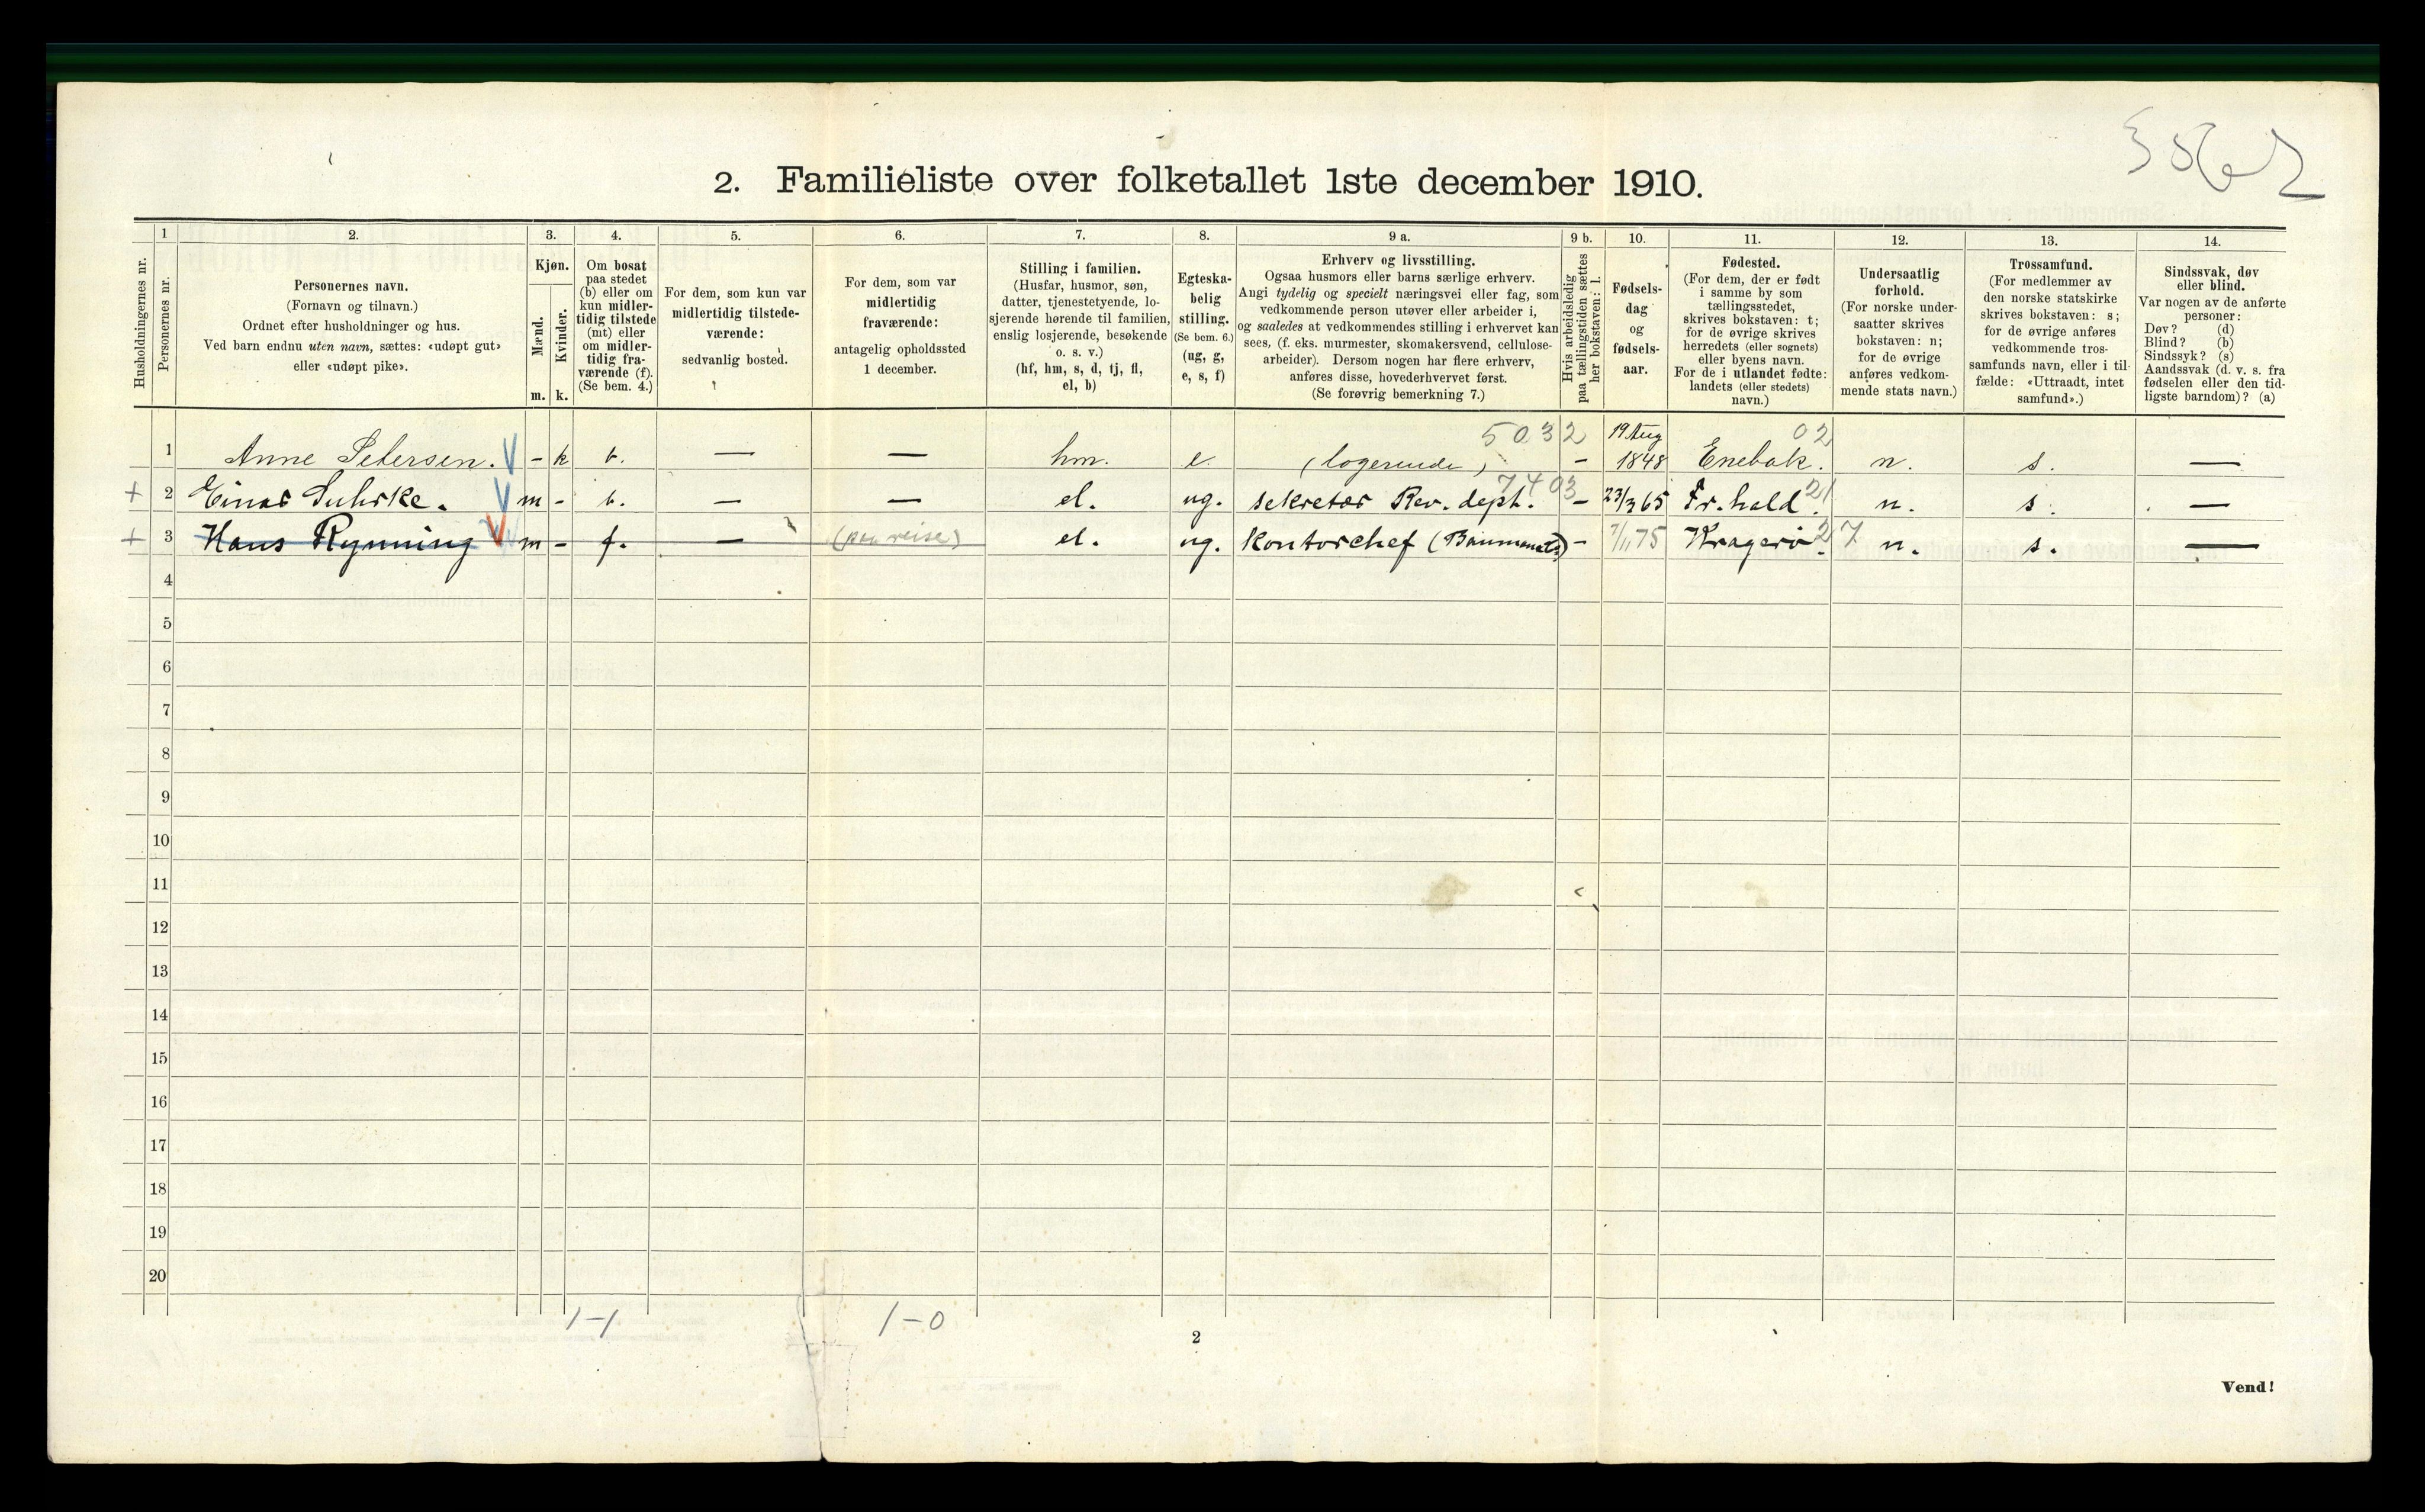 3562
2. Familieliste over folketallet 1ste december 1910.
Husholdningernes nr.
1
Personernes nr.
2.
Personernes navn.
(Fornavn og tilnavn.)
Ordnet efter husholdninger og hus.
Ved barn endnu uten navn, sættes: «udøpt gut»
eller «udøpt pike».
3.
Kjøn.
Mænd.
Kvinder.
m.
k.
4.
Om bosat
paa stedet
(b) eller om
kun midler-
tidig tilstede
(mt) eller
om midler-
tidig fra-
værende (f).
(Se bem. 4.)
5.
For dem, som kun var
midlertidig tilstede-
værende:
sedvanlig bosted.
6.
For dem, som var
midlertidig
fraværende:
antagelig opholdssted
1 december.
7.
Stilling i familien.
(Husfar, husmor, søn,
datter, tjenestetyende, lo-
sjerende hørende til familien,
enslig losjerende, besøkende
o. s. v.)
(hf, hm, s, d, tj, fl,
el, b)
8.
Egteska-
belig
stilling.
(Se bem. 6.)
(ug, g,
e, s, f)
9 a.
Erhverv og livsstilling.
Ogsaa husmors eller barns særlige erhverv.
Angi tydelig og specielt næringsvei eller fag, som
vedkommende person utøver eller arbeider i,
og saaledes at vedkommendes stilling i erhvervet kan
sees, (f. eks. murmester, skomakersvend, cellulose-
arbeider). Dersom nogen har flere erhverv,
anføres disse, hovederhvervet først.
(Se forøvrig bemerkning 7.)
9 b.
Hvis arbeidsledig
paa tællingstiden sættes
her bokstaven: l.
10.
Fødsels-
dag
og
fødsels-
aar.
11.
Fødested.
(For dem, der er født
i samme by som
tællingsstedet,
skrives bokstaven: t;
for de øvrige skrives
herredets (eller sognets)
eller byens navn.
For de i utlandet fødte:
landets (eller stedets)
navn.)
12.
Undersaatlig
forhold.
(For norske under-
saatter skrives
bokstaven: n;
for de øvrige
anføres vedkom-
mende stats navn.)
13.
Trossamfund.
(For medlemmer av
den norske statskirke
skrives bokstaven: s;
for de øvrige anføres
vedkommende tros-
samfunds navn, eller i til-
fælde: «Uttraadt, intet
samfund».)
14.
Sindssvak, døv
eller blind.
Var nogen av de anførte
personer:
Døv? (d)
Blind? (b)
Sindssyk? (s)
Aandssvak (d. v. s. fra
fødselen eller den tid-
ligste barndom)? (a)
5032 19 Aug 02
1 Anne Petersen. V - k b. — — hm. e. (logerende) - 1848 Enebak. n. s. —
7403 21
+ 2 Einar Suhrke. V m - b. — — el. ug. sekretær Rev. dept. - 23/3 65 Fr.hald. n. s. —
+ 3 Hans Rynning V m - f. — (paa reise) el. ug. Kontorchef - 7/11 75 Kragerø. 27 n. s. —
4
5
6
7
8
9
10
11
12
13
14
15
16
17
18
19
20
1-1 1-0
2
Vend!